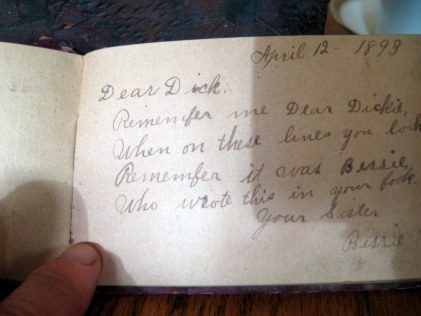 April 12 - 1893
Dear Dick.
Rememfer me Dear Dickie,
When on these lines you look
Rememfer it was Bessie
Who wrote this in your fook.
Your Sister
Bessie